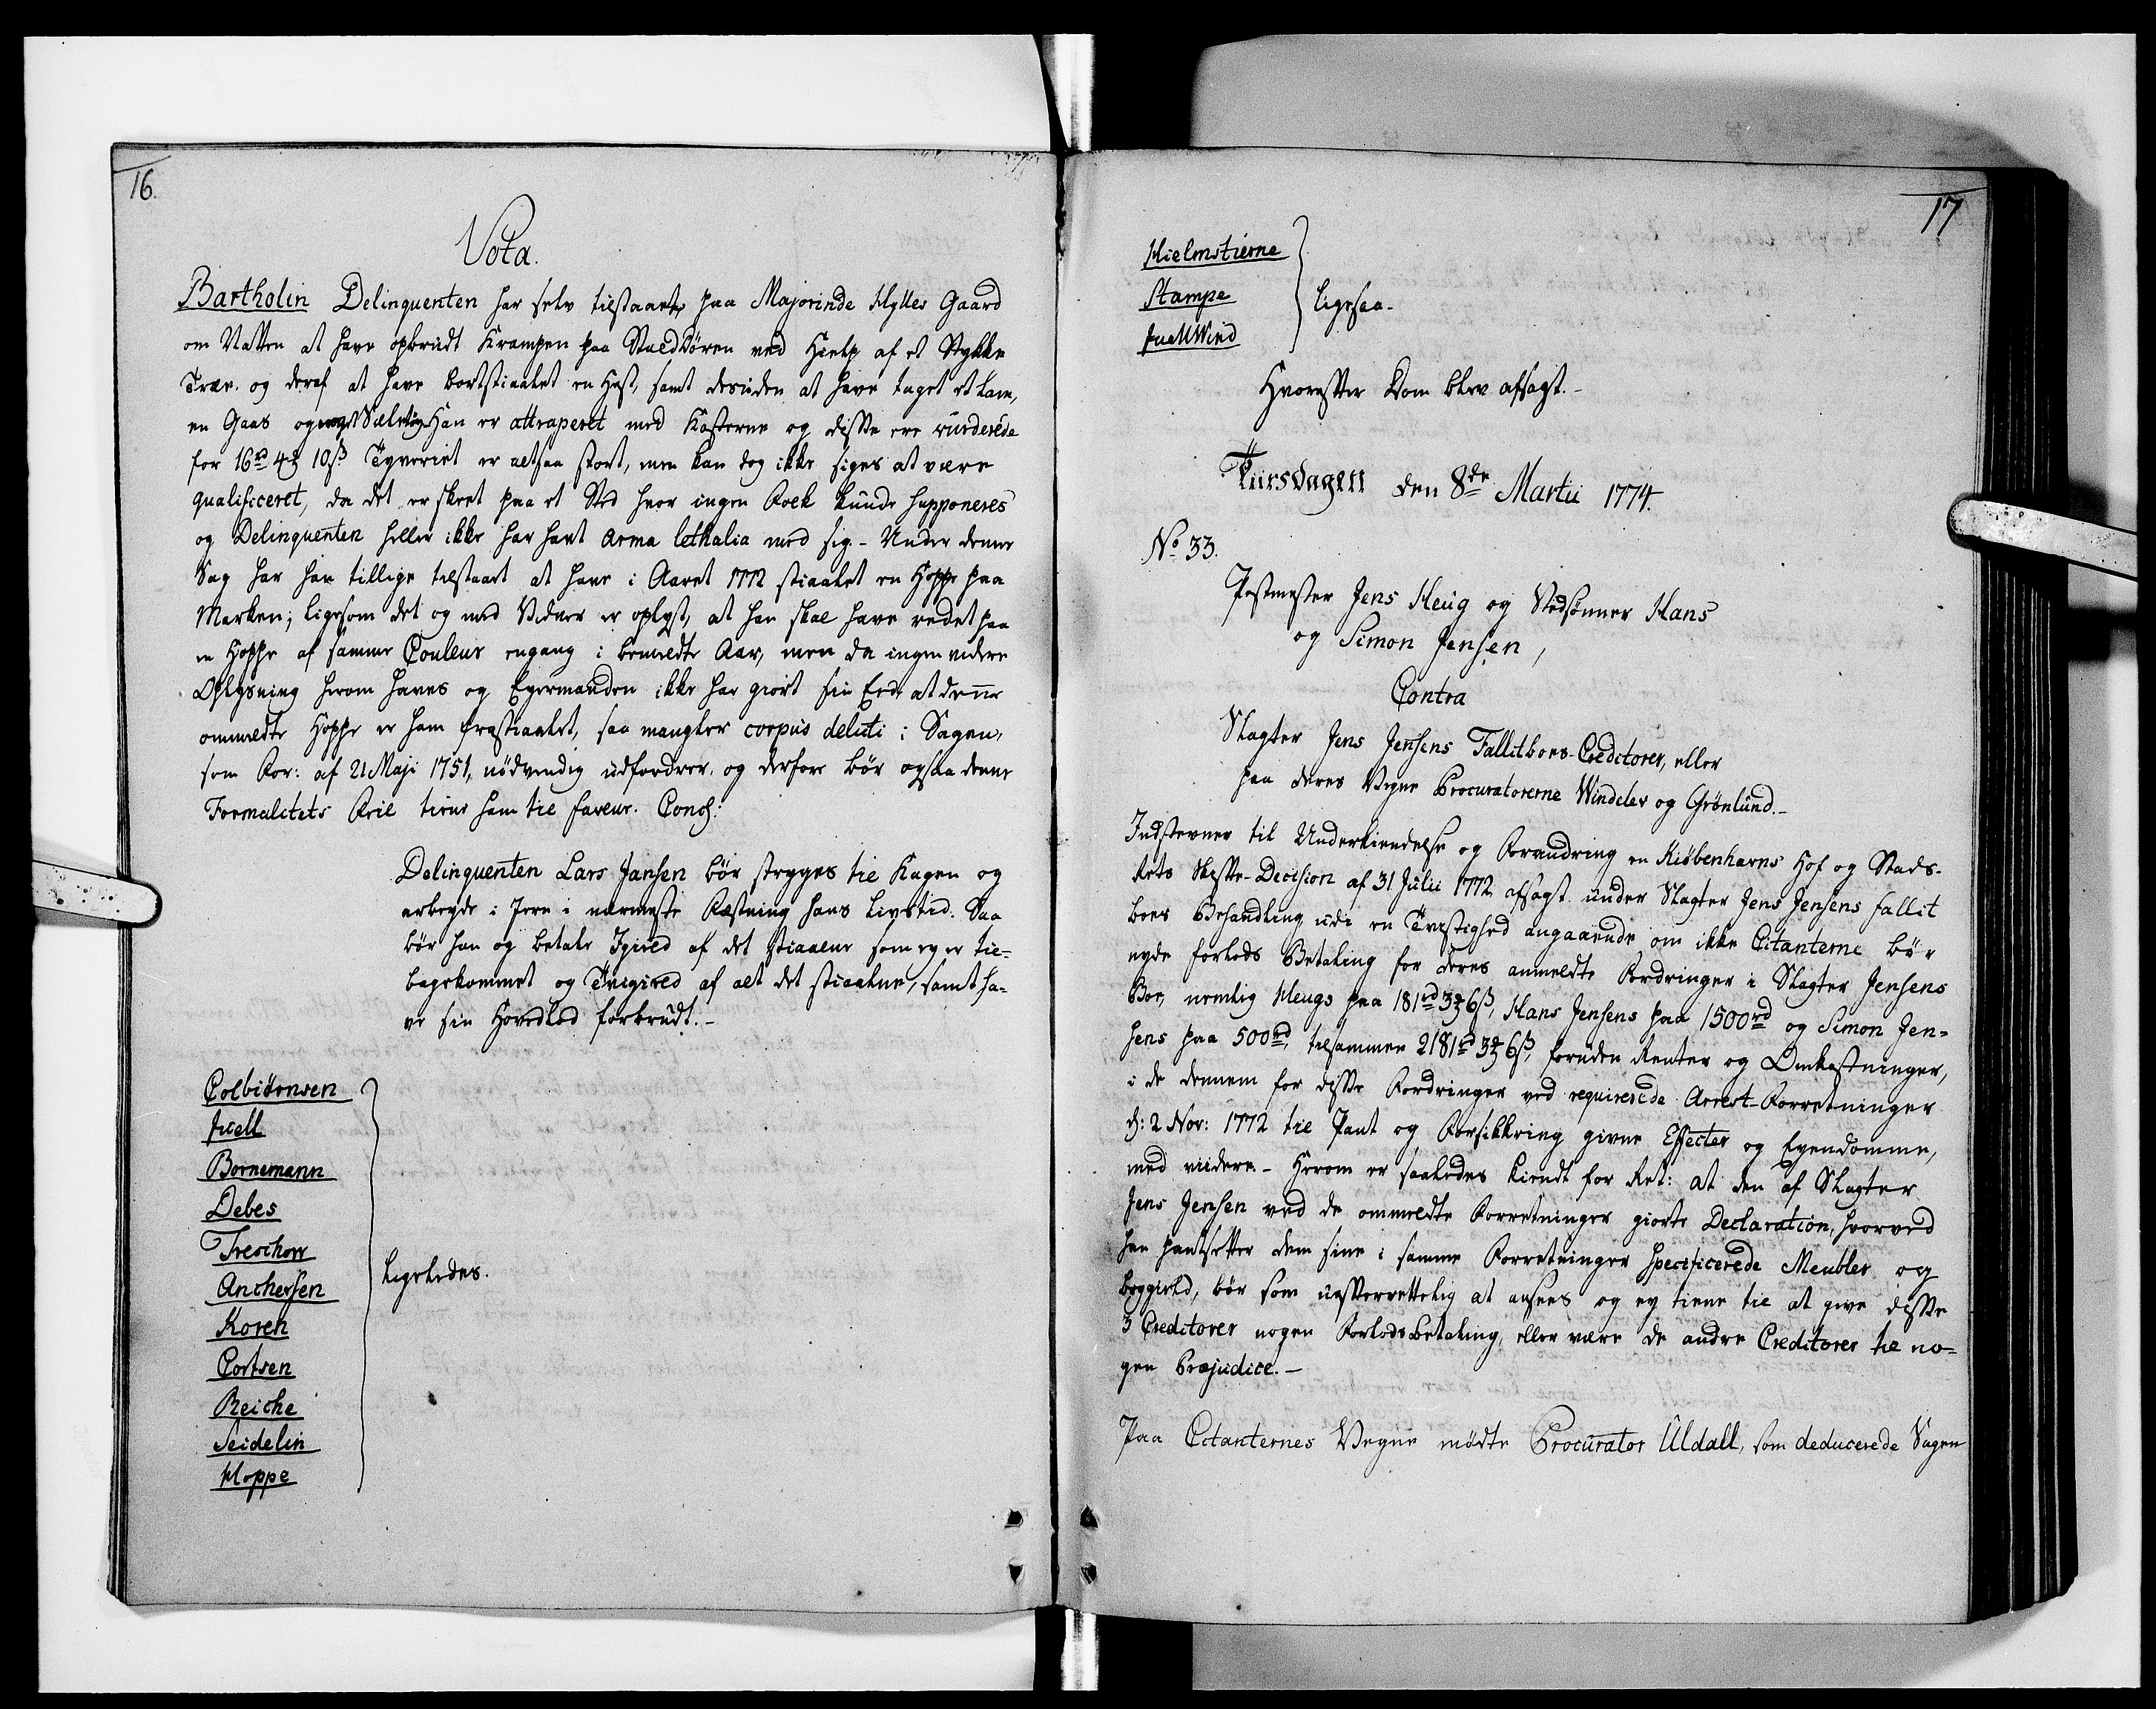 16.
Vota.
Bartholin Delinquenten har selv tilstaaet paa Majorinde Hylles Gaard
om Natten at have opbrudt Krampen paa Stalddören ved Hielp af et Stykke
Træe, og deraf at have bortstiaalet en Hest, samt desuden at have taget et Lam,
en Gaas og noget Sæletöy. Han er attraperet med Kosterne og disse ere vurderede
for 16rd 4 10ß. Tyveriet er altsaa stort, men kan dog ikke siges at være
qualificeret, da det er skeet paa et Sted hvor ingen Folk kunde supponeres
og Delinquenten heller ikke har havt arma lethalia med sig. - Under denne
Sag har han tillige tilstaaet at have i Aaret 1772 stiaalet en Hoppe paa
Marken; ligesom det og med Vidner er oplyst, at han skal have redet paa
en Hoppe af samme Couleur engang i bemeldte Aar, men da ingen videre
Oplysning herom haves og Eyermanden ikke har giort sin Eed at denne
ommeldte Hoppe er ham frastiaalet, saa mangler corpus delicti i Sagen,
som For: af 21 Maji 1751, nödvendig udfordrer, og derfore bör ogsaa denne
Formalitets Feil tiene ham til faveur. Concl:
Delinquenten Lars Jansen bör stryges til Kagen og
arbeyde i Jern i nærmeste Fæstning hans Livstid. Saa
bör han og betale Igield af det stiaalne som ey er til-
bagekommet og Tvigield af alt det stiaalne, samt ha-
ve sin Hovedlod forbrudt. -
Colbiörnsen
Juell
Bornemann
Debes
Treschow
Anchersen
Koren
Cortsen
Reiche
Seidelin
Hoppe
ligeledes.
17
Hielmstierne
Stampe
JuellWind
ligesaa.
Hvorefter Dom blev afsagt. -
Tiirsdagen den 8de Martii 1774.
No 33.
Postmester Jens Heug og Stedsönner Hans
og Simon Jensen,
Contra
Slagter Jens Jensens Fallitboes-Creditorer, eller
paa deres Vegne Procuratorerne Windelev og Grönlund. -
Indstevner til Underkiendelse og Forandring en Kiöbenhavns Hof og Stads-
Rets Skifte-Decision af 31 Julii 1772 afsagt under Slagter Jens Jensens fallit
boes Behandling udi en Tvistighed angaaende om ikke Citanterne bör
nyde forlods Betaling for deres anmeldte Fordringer i Slagter Jensens
Boe, nemlig Heugs paa 181rd 3 6ß, Hans Jensens paa 1500rd og Simon Jen-
sens paa 500rd, tilsammen 2181rd 3 6ß, foruden Renter og Omkostninger,
i de dennem for disse Fordringer ved requirerede Arrest-Forretninger
d: 2 Nov: 1772 til Pant og Forsikkring givne Effecter og Eyendomme,
med videre. - Herom er saaledes kiendt for Ret: at den af Slagter
Jens Jensen ved de ommeldte Forretninger giorte Declaration, hvorved
han pantsetter dem sine i samme Forretninger specificerede Meubler og
boggield, bör som uefterrettelig at ansees og ey tiene til at give disse
3 Creditorer nogen Forlodsbetaling, eller være de andre Creditorer til no-
gen Præjudice. -
Paa Citanternes Vegne mödte Procurator Uldall, som deducerede Sagen